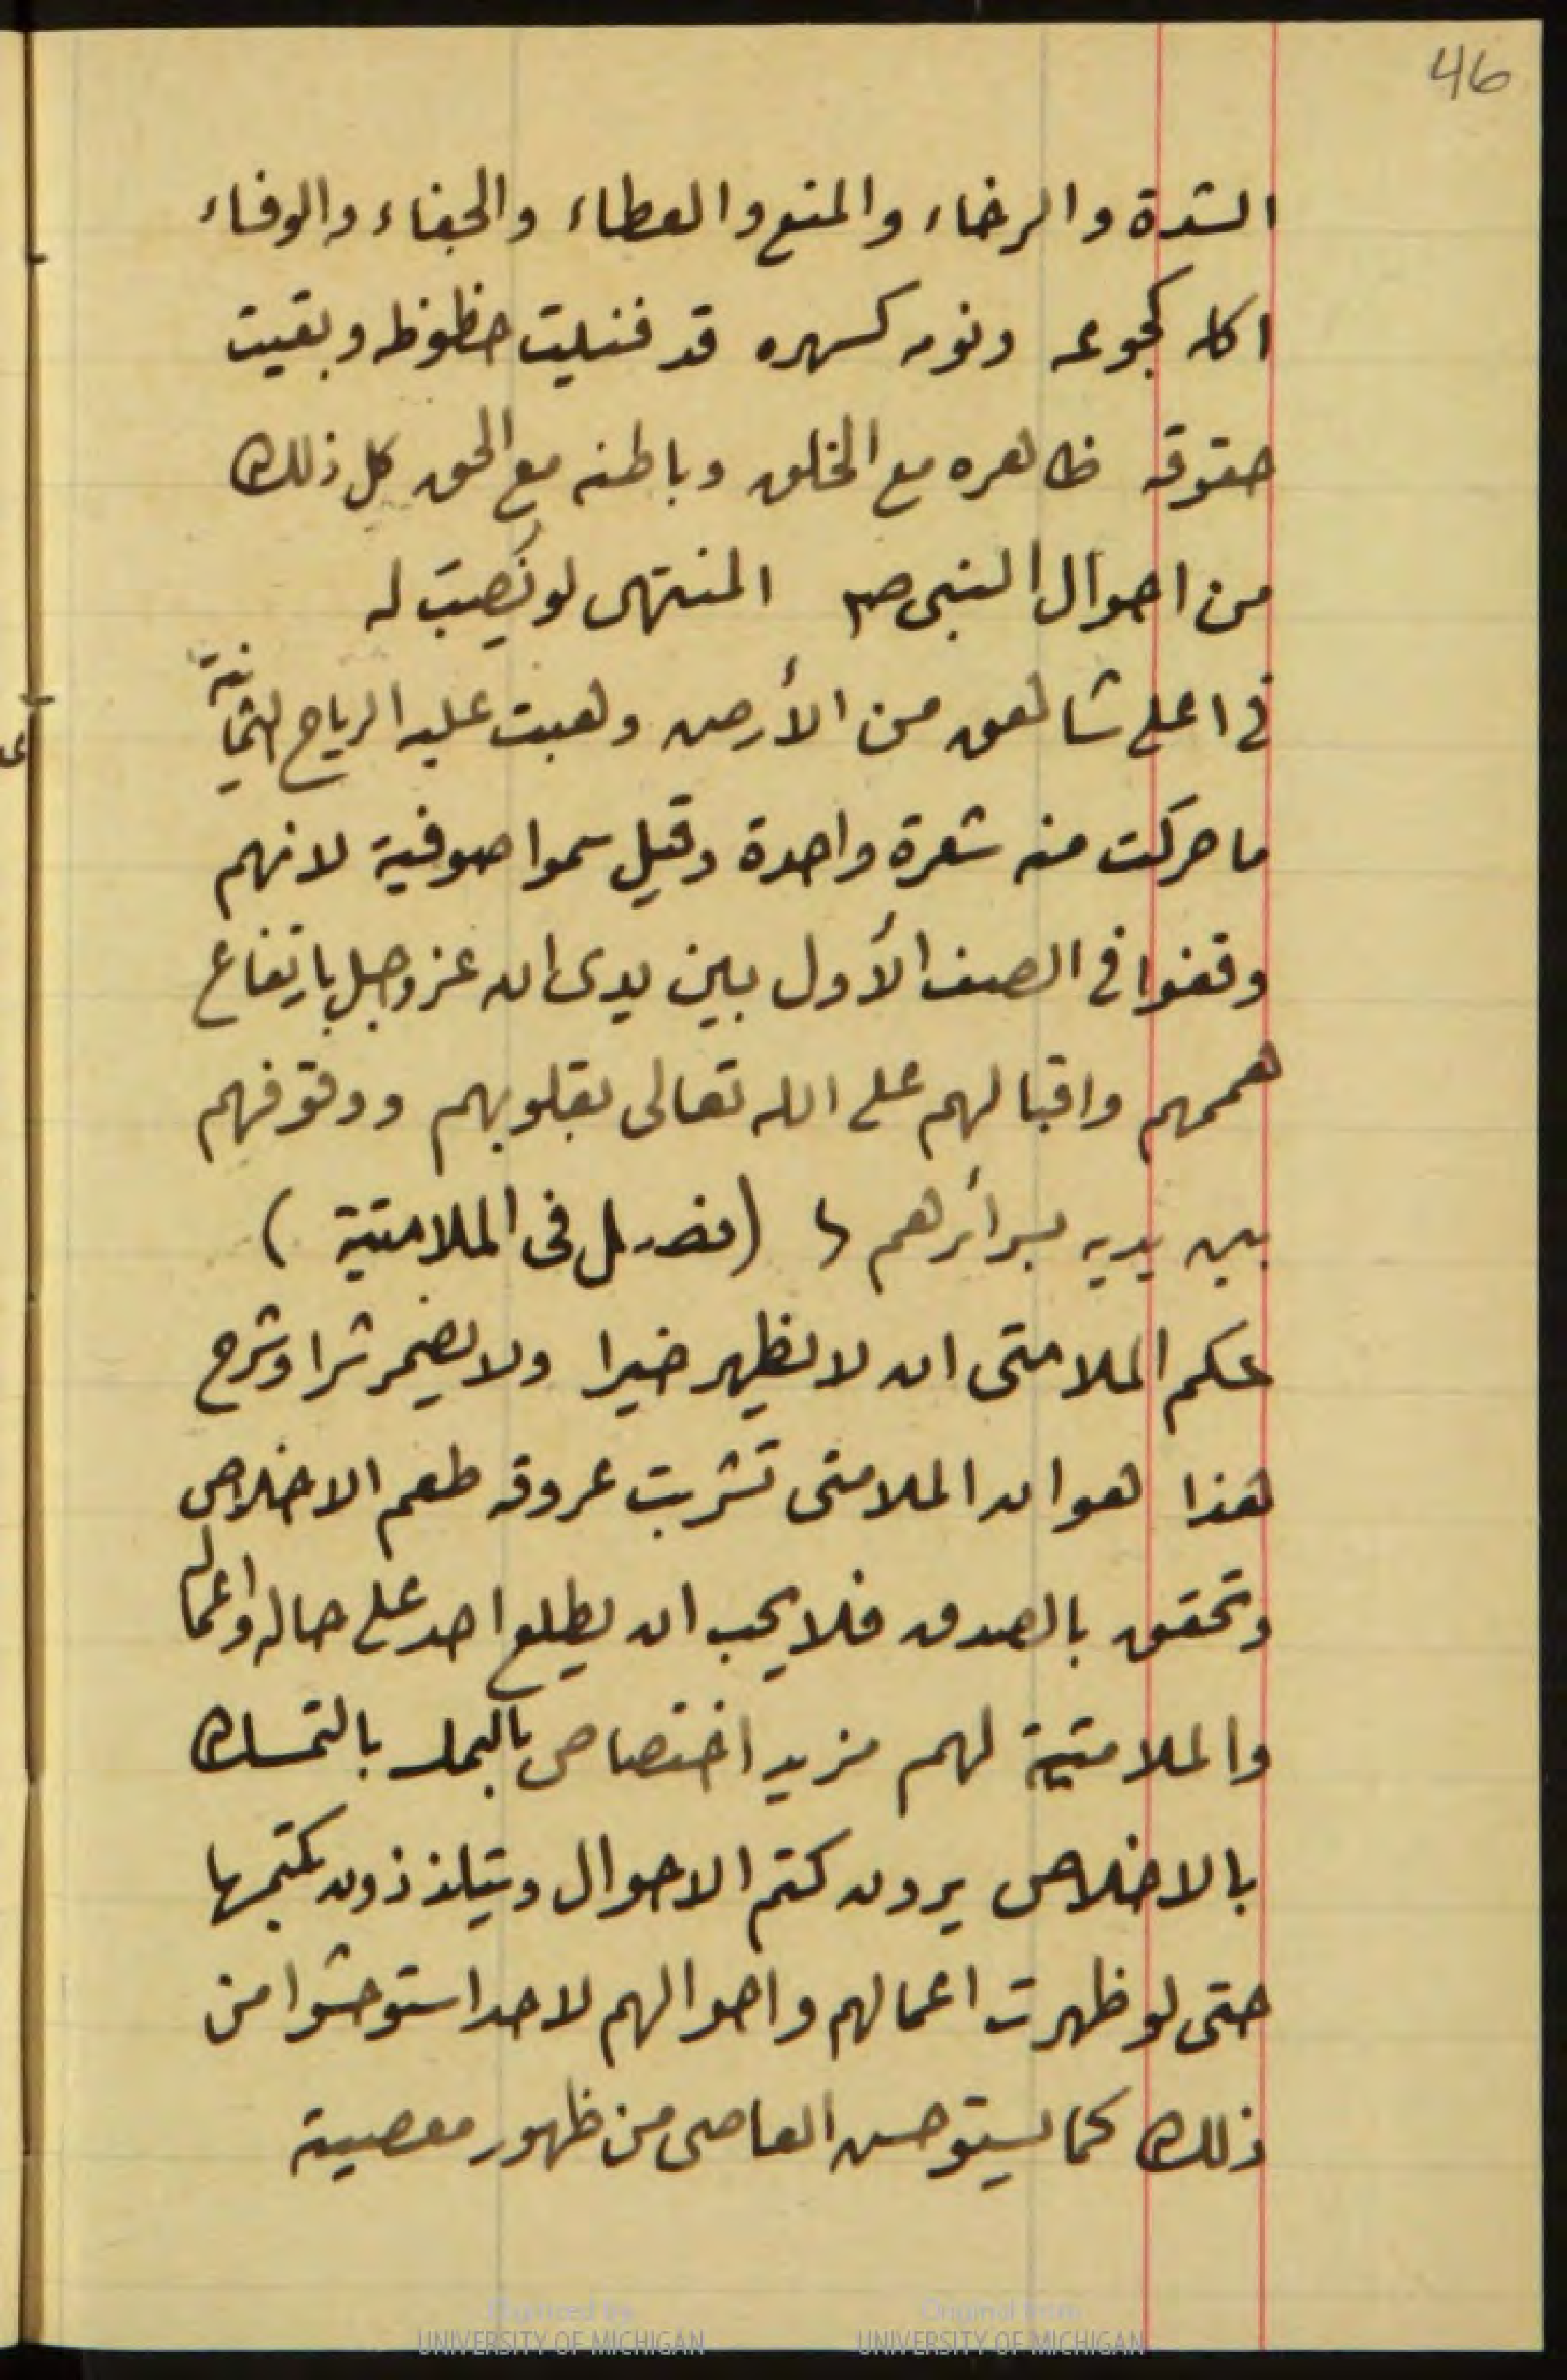 46
الشدة والرخاء والمنع والعطاء والجفاء والوفاء
اكله كجوعه ونومه كسهره قد فنيت حظوظه وبقيت
حقوقه ظاهره مع الخلق وباطنه مع الحق كل ذلك
من احوال النبى صم المنتهى لو نُصِبت له
فى اعلى شاهق من الأرض وهبت عليه الرياح الثمانية
ما حركت منه شعرة واحدة وقيل سموا صوفية لانهم
وقفوا فى الصف الأول بين يدى الله عز وجل بارتفاع
هممهم واقبالهم على الله تعالى بقلوبهم ووقوفهم
بين يديه بسرائرهم (فصل فى الملامتية)
حكم الملامتى ان لا يظهر خيرا ولا يضمر شرا وشرح
هذا هو ان الملامتى تشربت عروقه طعم الاخلاص
وتحقق بالصدق فلا يحب ان يطلع احد على حاله واعماله
والملامتية لهم مزيد اختصاص بالتمسك
بالاخلاص يرون كتم الاحوال ويتلذذون بكتمها
حتى لو ظهرت اعمالهم واحوالهم لاحد استوحشوا من
ذلك كما يستوحش العاصى من ظهور معصية
Digitized by
UNIVERSITY OF MICHIGAN
Original from
UNIVERSITY OF MICHIGAN